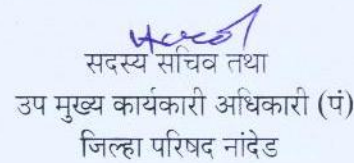 सदस्य सचिव तथा
उप मुख्य कार्यकारी अधिकारी (पं)
जिल्हा परिषद नांदेड